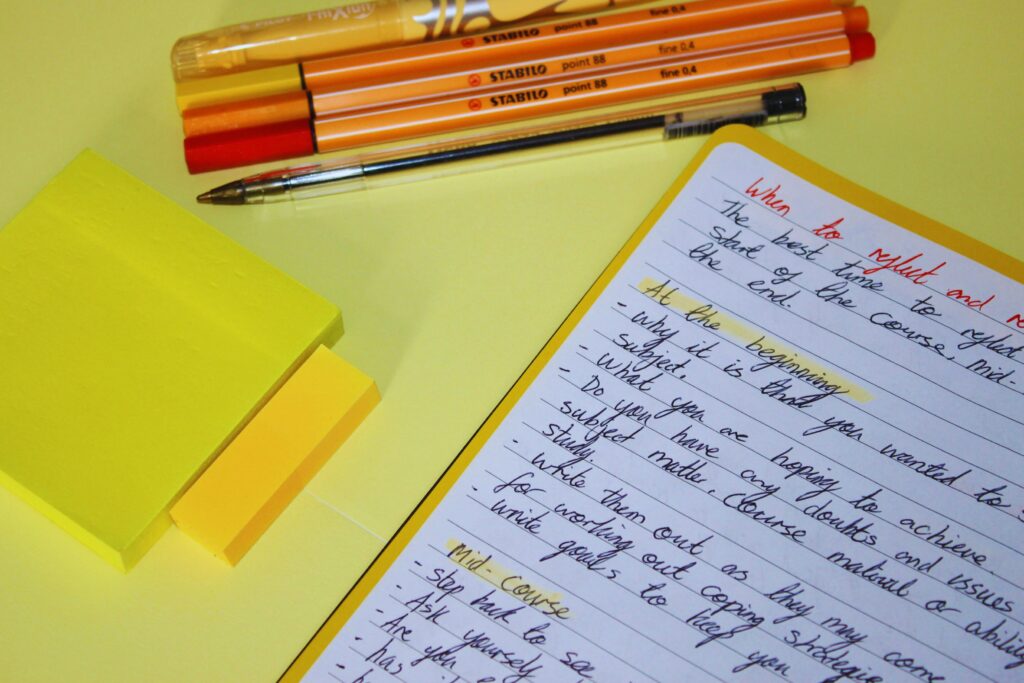 PILOT
STABILO point 88 fine 0,4
STABILO point 88 fine 0,4
STABILO point 88 fine 0,4
When to reflect and
The best time to reflect
start of the course, mid-
the end.
At the beginning
- why it is that you wanted to
subject.
- what you are hoping to achieve
- Do you have any doubts and issues
subject matter, course material or ability
study.
- write them out as they may come
for working out coping strategies
- write goals to keep you
Mid-course
- step back to see
- Ask yourself
- Are you
- has